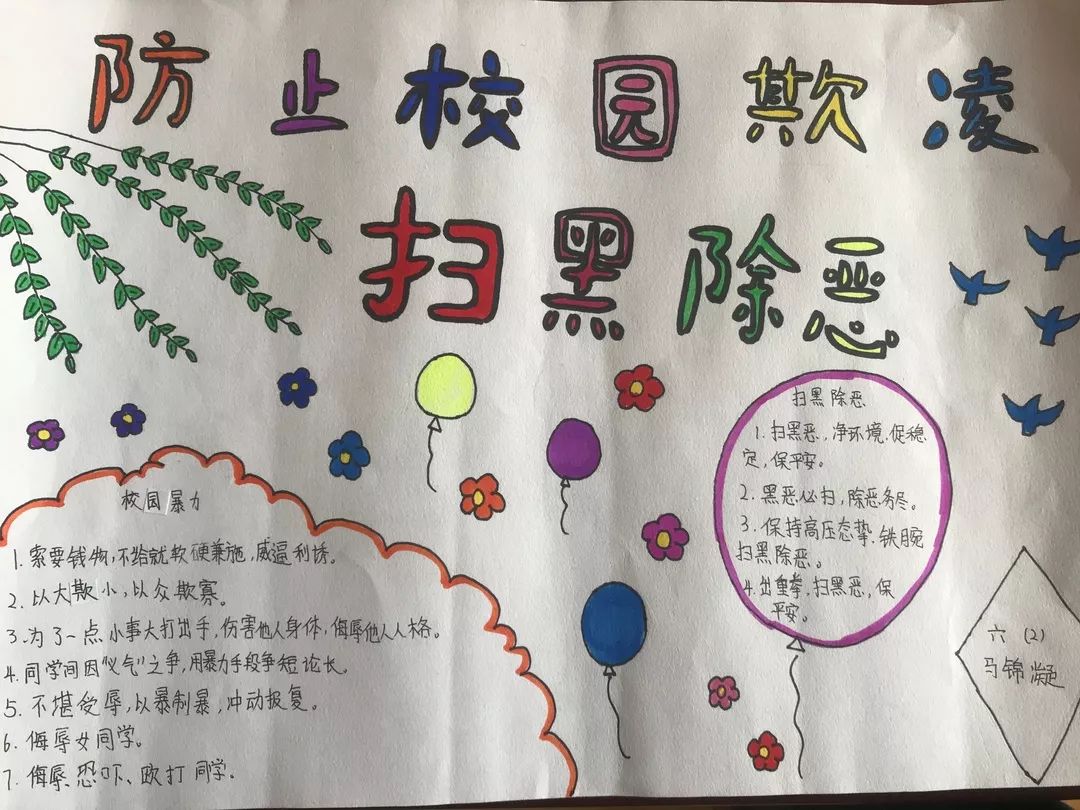 防止校园欺凌
扫黑除恶
校园暴力
1.索要钱物,不给就软硬兼施,威逼利诱。
2.以大欺小,以众欺寡。
3.为了一点小事大打出手,伤害他人身体,侮辱他人人格。
4.同学间因“义气”之争,用暴力手段争短论长。
5.不堪受辱,以暴制暴,冲动报复。
6.侮辱女同学。
7.侮辱、恐吓、欧打同学。
扫黑除恶
1.扫黑恶,净环境.促稳
定,保平安。
2.黑恶必扫,除恶务尽。
3.保持高压态势.铁腕
扫黑除恶。
4.出重拳,扫黑恶,保
平安。
六(2)
马锦凝